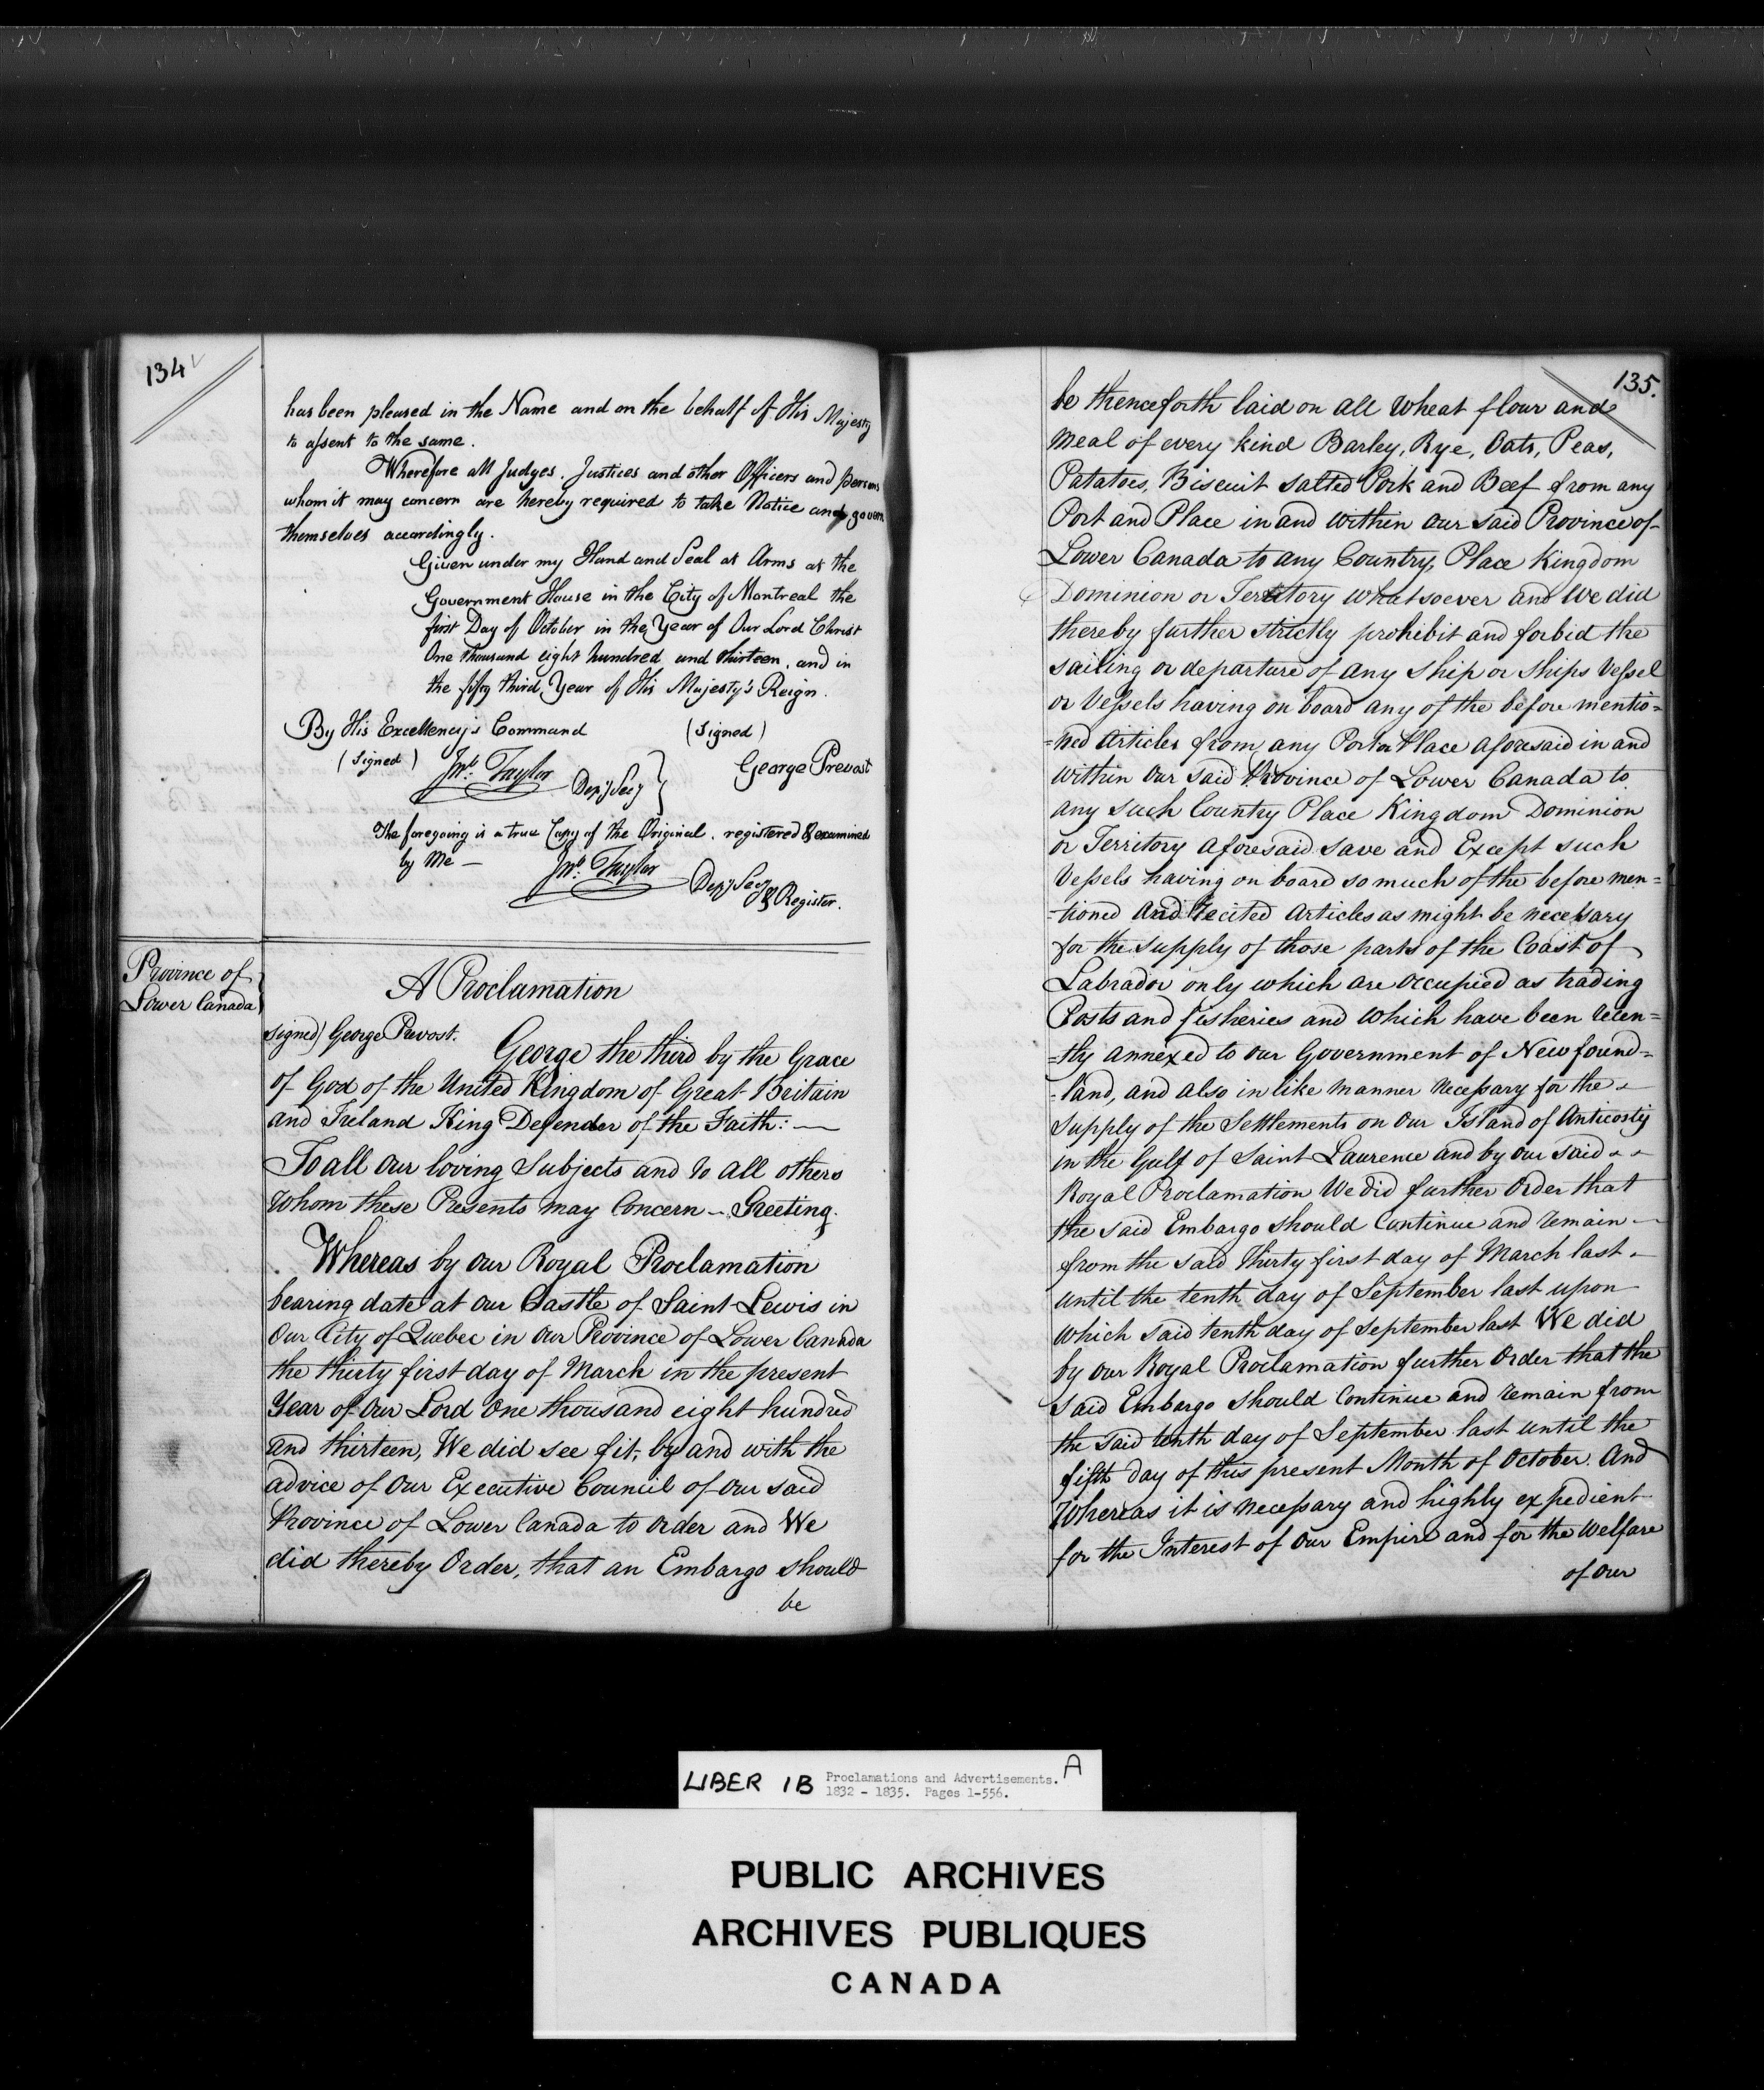 134
has been pleased in the Name and on the behalf of His Majesty
to assent to the same.
Wherefore all Judges. Justices and other Officers and persons
whom it may concern are hereby required to take Notice and govern
themselves accordingly.
Given under my Hand and Seal at Arms at the
Government House in the City of Montreal the
first Day of October in the Year of Our Lord Christ
One thousand eight hundred and thirteen, and in
the fifty third Year of His Majesty's Reign.
By His Excellency's Command (Signed)
(Signed) Jno. Taylor Depy Secy George Prevost
The foregoing is a true Copy of the Original. registered & examined
by Me — Jno. Taylor Depy Secy
& Register.
Province of
Lower Canada
A Proclamation
signed) George Prevost.
George the third by the Grace
of God of the United Kingdom of Great Britain
and Ireland King Defender of the Faith: —
To all Our loving Subjects and to all others
Whom these Presents may Concern — Greeting.
Whereas by our Royal Proclamation
bearing date at our Castle of Saint Lewis in
Our City of Quebec in our Province of Lower Canada
the thirty first day of March in the present
Year of Our Lord One thousand eight hundred
and thirteen, We did see fit, by and with the
advice of Our Executive Council of our said
Province of Lower Canada to order and We
did thereby Order, that an Embargo should
be
135.
be thenceforth laid on all Wheat flour and
Meal of every kind Barley, Rye, Oats, Peas,
Patatoes, Biscuit salted Pork and Beef from any
Port and Place in and within our said Province of
Lower Canada to any Country, Place Kingdom
Dominion or Territory whatsoever and We did
thereby further strictly prohibit and forbid the
sailing or departure of any Ship or Ships Vessel
or Vessels having on board any of the before mentio=
=ned Articles from any Port or Place aforesaid in and
within our said Province of Lower Canada to
any such Country Place Kingdom Dominion
or Territory aforesaid save and Except such
Vessels having on board so much of the before men=
=tioned and recited Articles as might be necessary
for the supply of those parts of the Coast of
Labrador only which are occupied as trading
Posts and fisheries and which have been recen=
=tly annexed to our Government of Newfound=
=land, and also in like manner necessary for the
supply of the Settlements on our Island of Anticosty
in the Gulf of Saint Laurence and by our said
Royal Proclamation We did further Order that
the said Embargo should Continue and remain —
from the said Thirty first day of March last
until the tenth day of September last upon
which said tenth day of September last We did
by our Royal Proclamation further Order that the
said Embargo should Continue and remain from
the said tenth day of September last until the
fifth day of this present Month of October. And
Whereas it is necessary and highly expedient
for the Interest of our Empire and for the Welfare
of our
LIBER 1B Proclamations and Advertisements. A
1832 - 1835. Pages 1-556.
PUBLIC ARCHIVES
ARCHIVES PUBLIQUES
CANADA